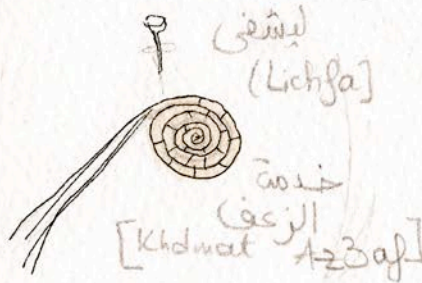 ليشفى
(Lichfa]
خدمة
الزعف
[Khdmat Az3af]